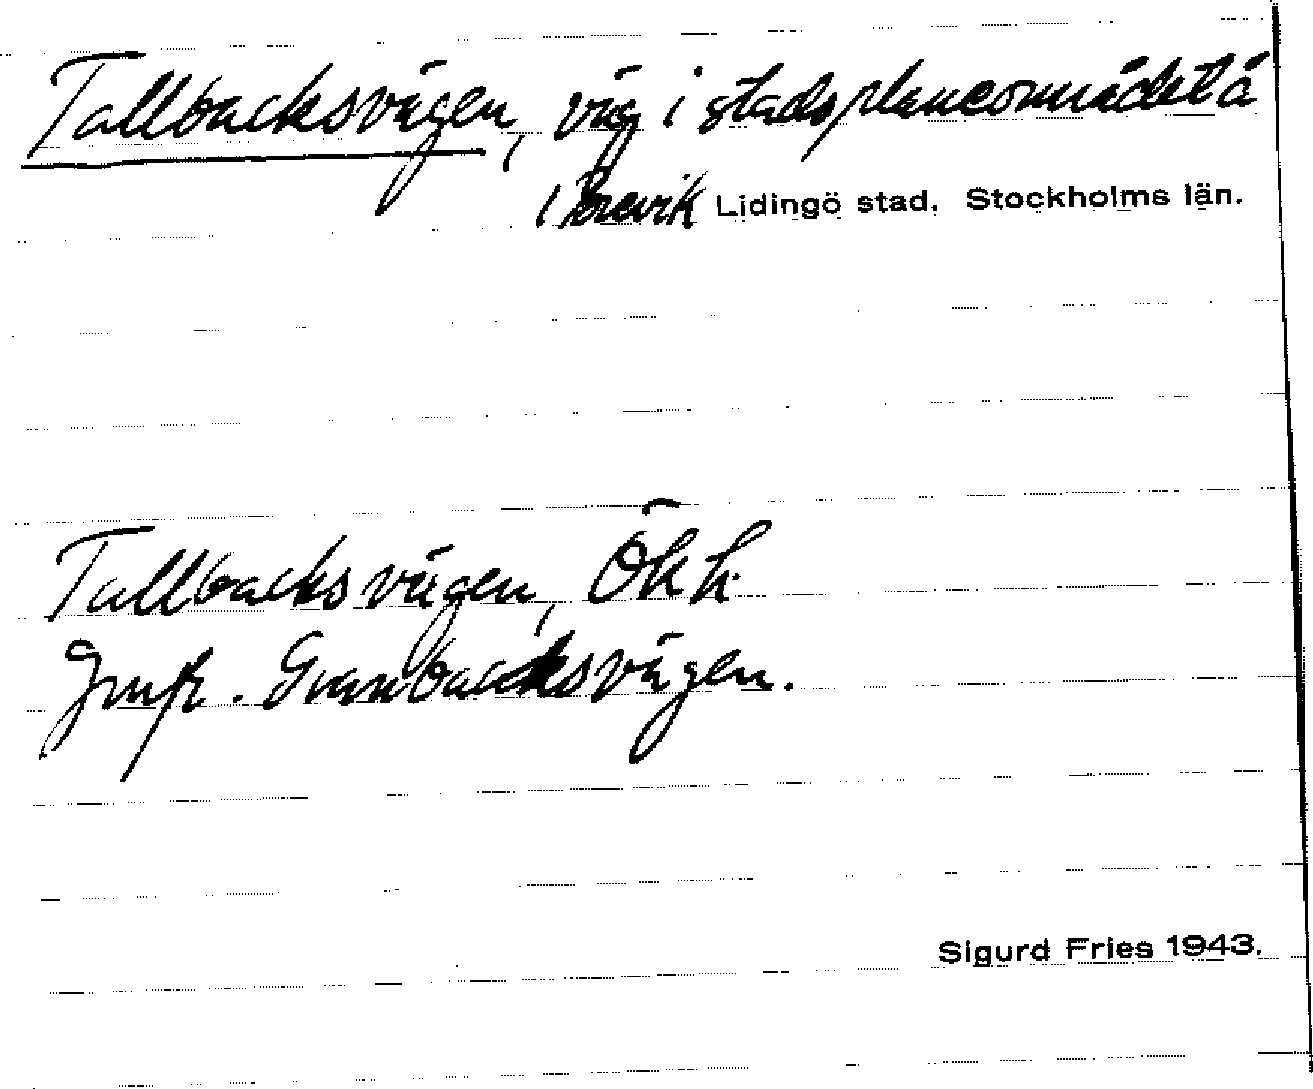 Tallbacksvägen, väg i stadsplaneområdet å
i Brevik Lidingö stad. Stockholms län.
Tallbacksvägen, Ökh.
Jmfr. Granbacksvägen.
Sigurd Fries 1943.